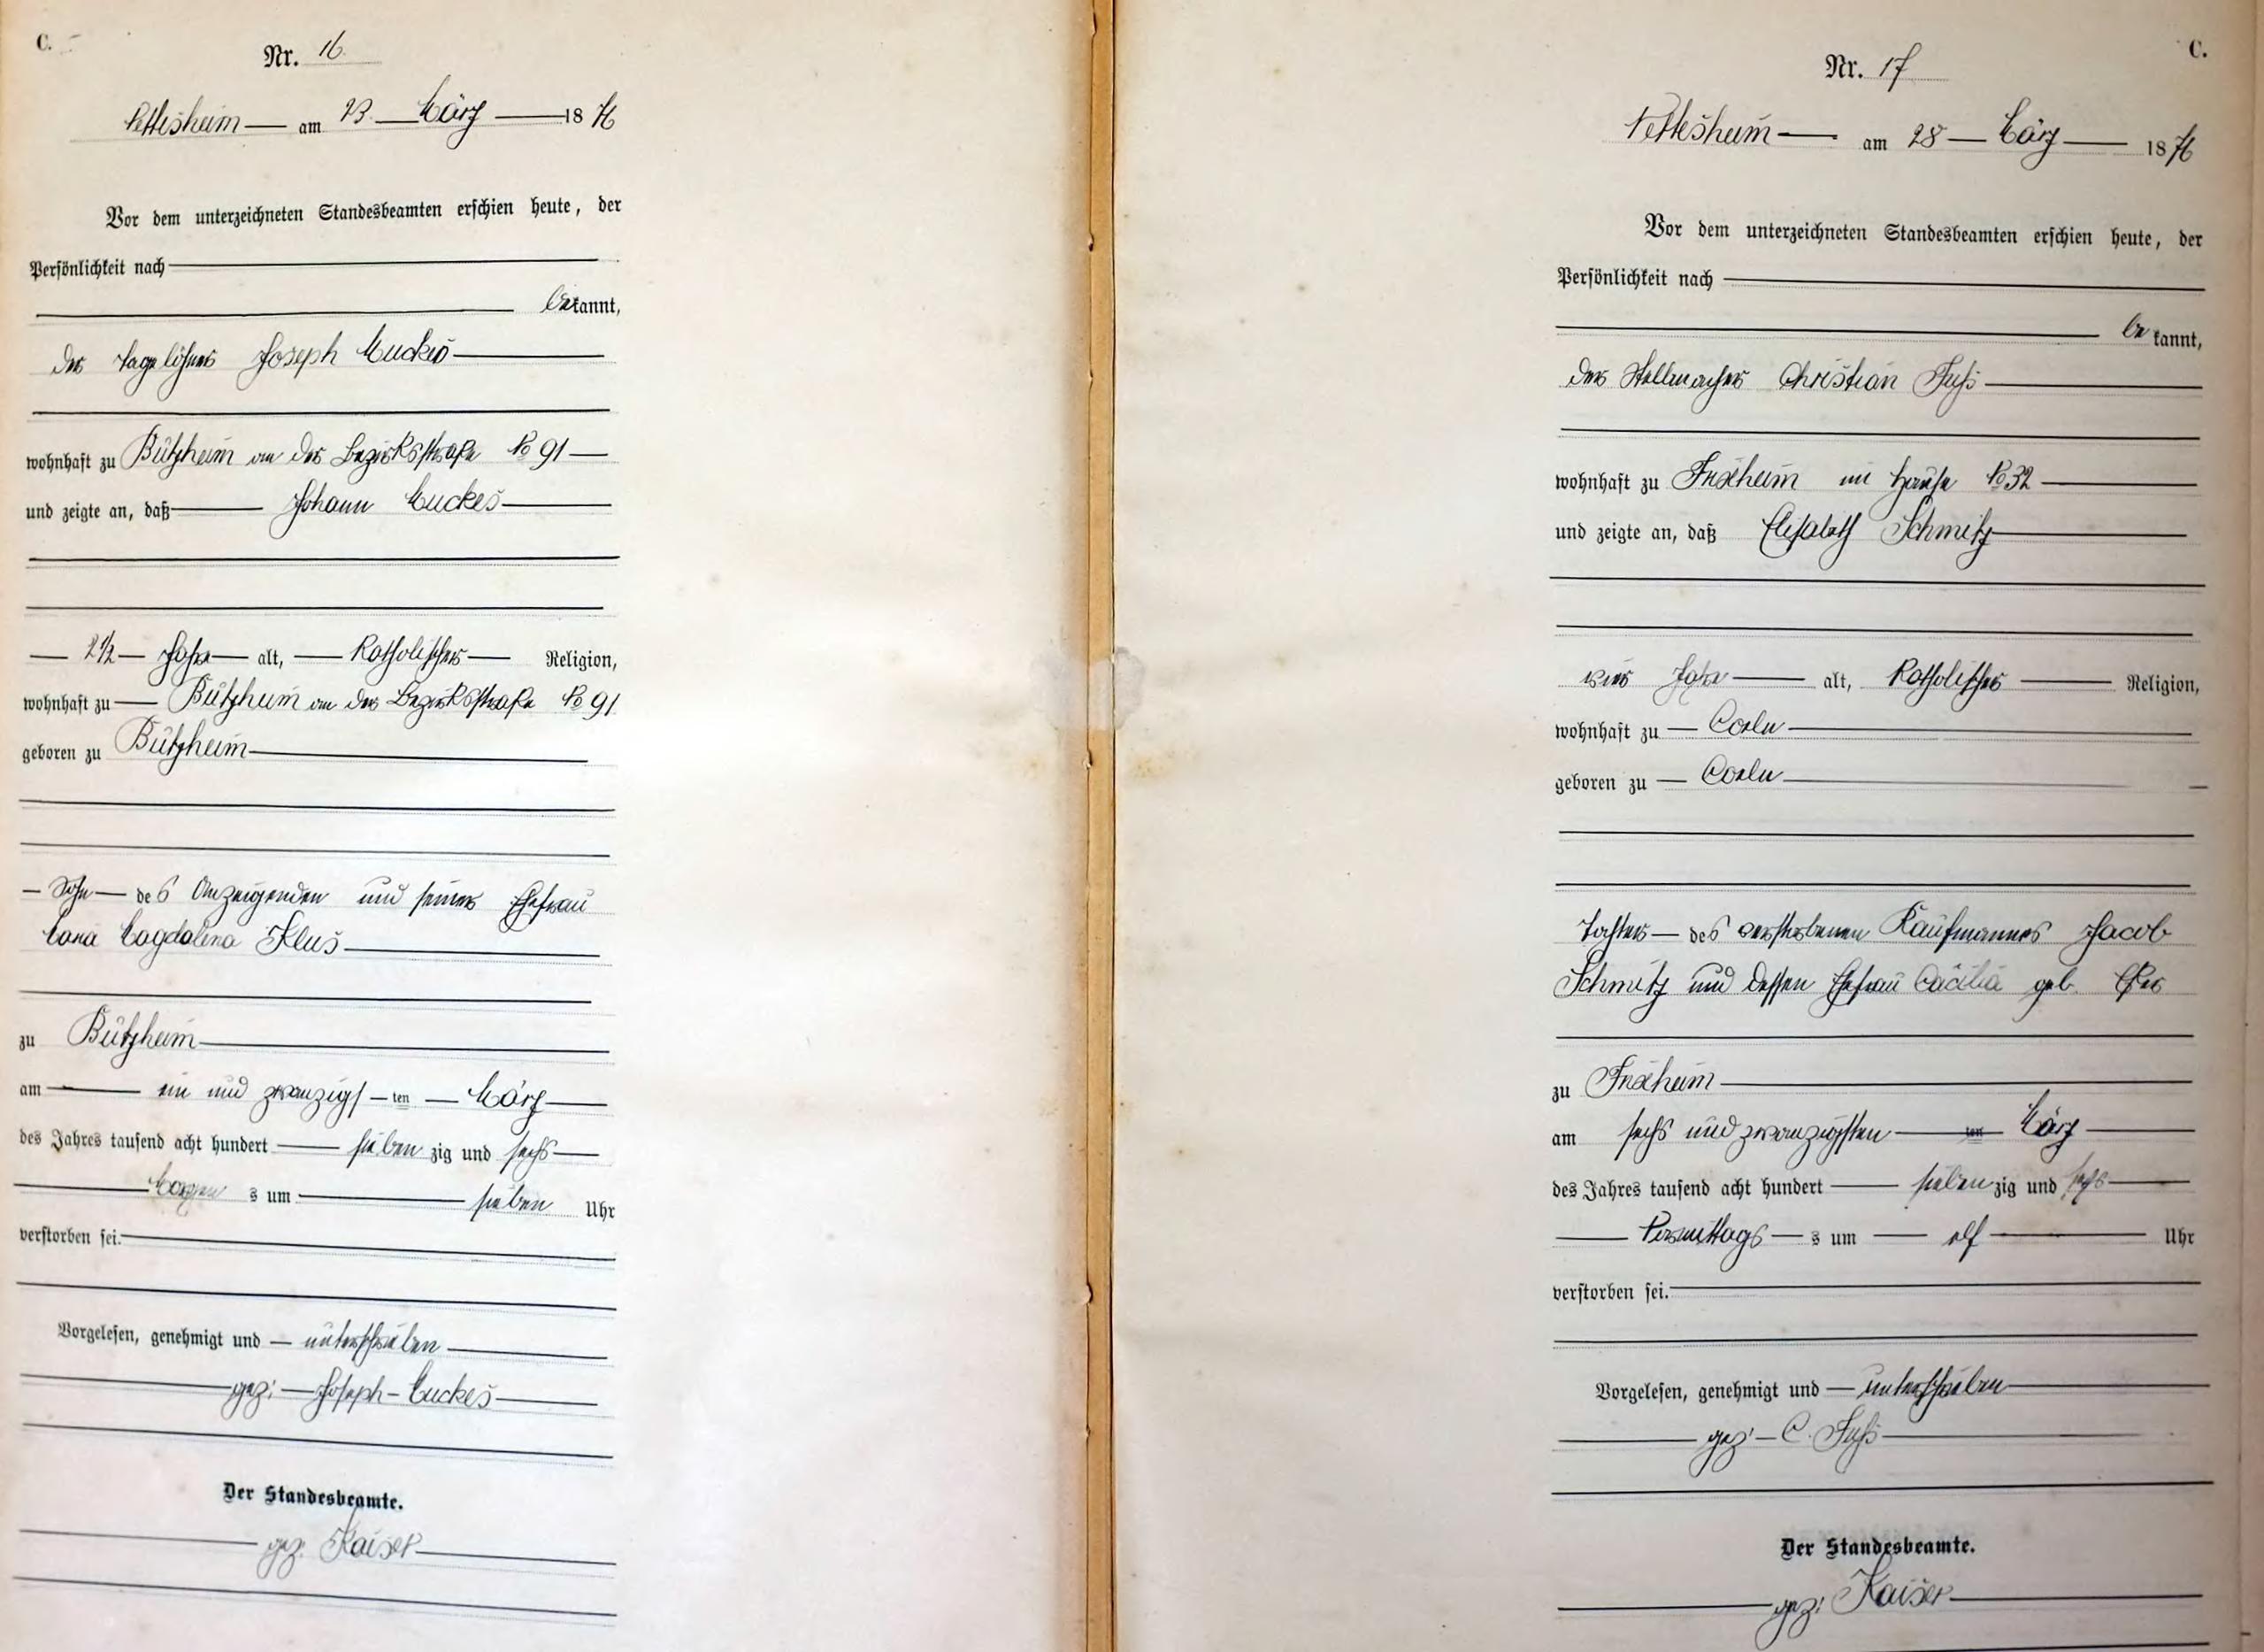 C.
Nr. 16.
Nettesheim am 23. März 1876
Vor dem unterzeichneten Standesbeamten erschien heute, der
Persönlichkeit nach
bekannt,
der Tagelöhner Joseph Muckes
wohnhaft zu Bützheim an der Bezirksstraße No 91
und zeigte an, daß Johann Muckes
2 1/2 Jahre alt, Katholischer Religion,
wohnhaft zu Bützheim an der Bezirksstraße No 91
geboren zu Bützheim
Sohn des Anzeigenden und seiner Ehefrau
Maria Magdalena Kluš
zu Bützheim
am ein und zwanzigsten März
des Jahres tausend acht hundert siebenzig und sechs
Morgens um sieben Uhr
verstorben sei.
Vorgelesen, genehmigt und unterschrieben
gez: Joseph Muckes
Der Standesbeamte.
gez: Kaiser
C.
Nr. 17
Nettesheim am 28 März 1876
Vor dem unterzeichneten Standesbeamten erschien heute, der
Persönlichkeit nach
bekannt,
der Stellmacher Christian Fuß
wohnhaft zu Frixheim im Hause No 32
und zeigte an, daß Elisabeth Schmitz
vier Jahre alt, Katholischer Religion,
wohnhaft zu Coeln
geboren zu Coeln
Tochter des verstorbenen Kaufmannes Jacob
Schmitz und dessen Ehefrau Cäcilia geb.
zu Frixheim
am sechs und zwanzigsten ten März
des Jahres tausend acht hundert siebenzig und sechs
Vormittags s um elf Uhr
verstorben sei.
Vorgelesen, genehmigt und unterschrieben
gez: C. Fuß
Der Standesbeamte.
gez: Kaiser